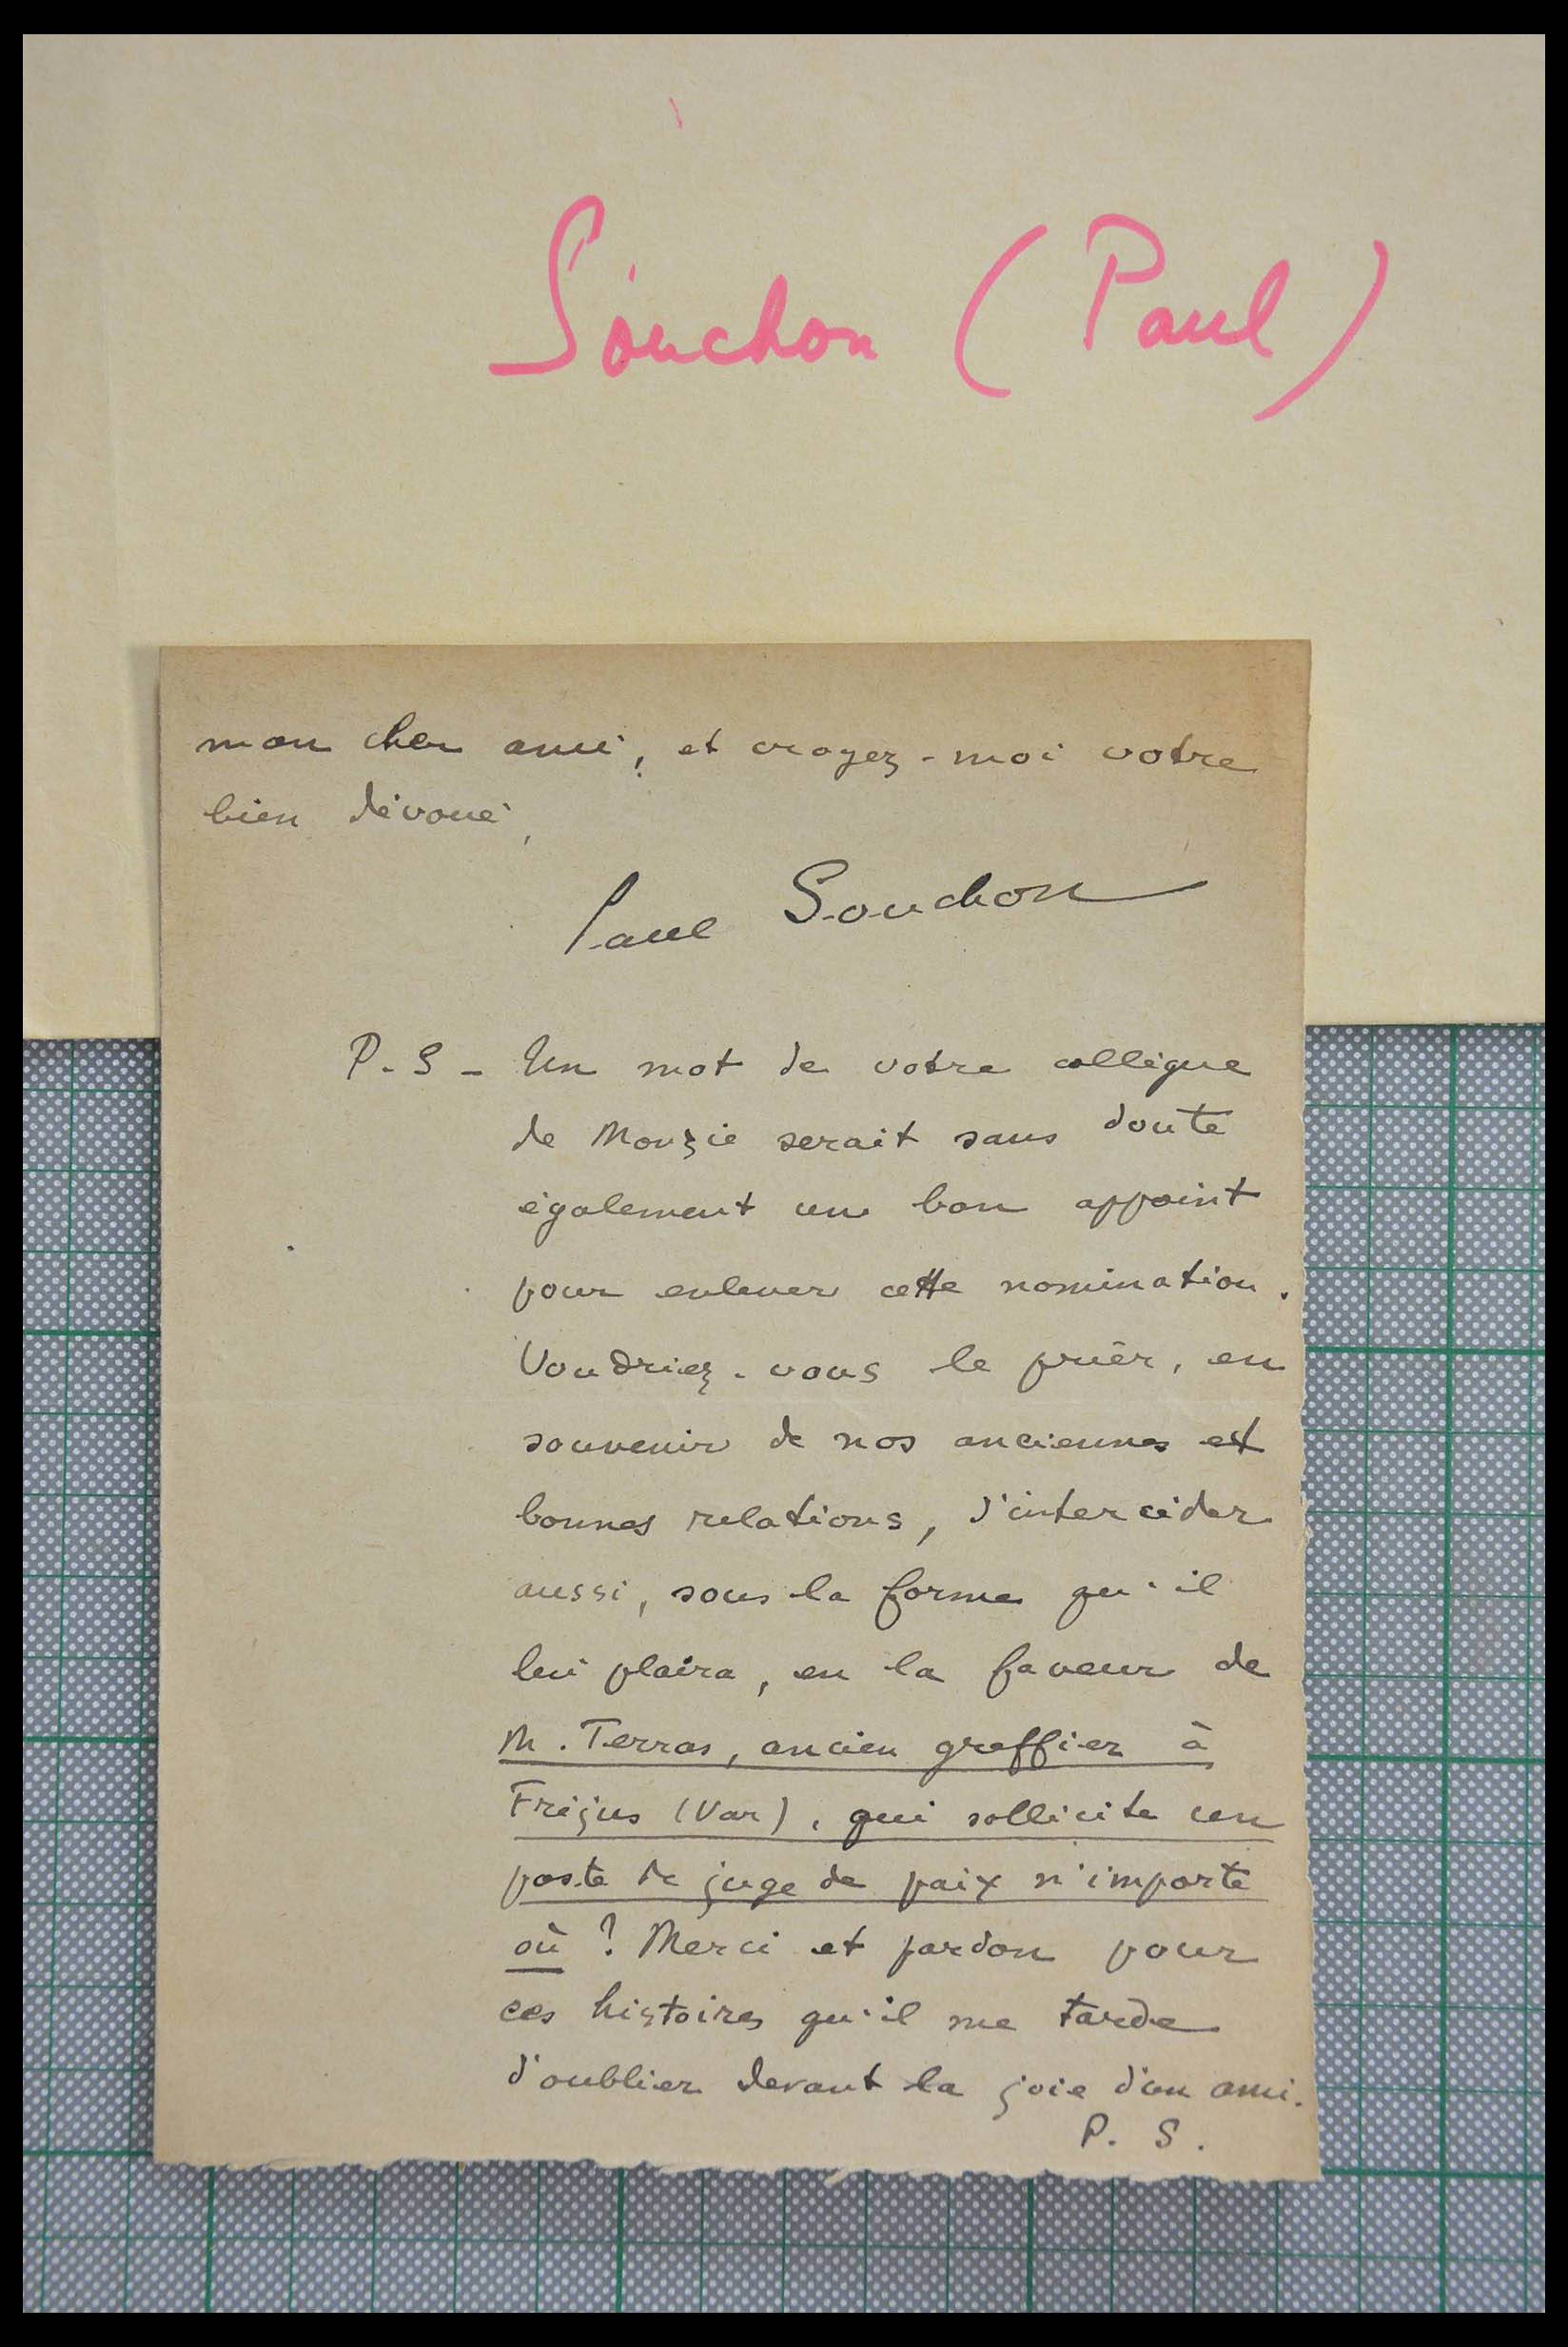 Souchon (Paul)
mon cher ami, et croyez-moi votre
bien dévoué,
Paul Souchon
P.S - Un mot de votre collègue
de Monzie serait sans doute
également un bon appoint
pour enlever cette nomination.
Voudriez-vous le prier, en
souvenir de nos anciennes et
bonnes relations, d'intercéder
aussi, sous la forme qu'il
lui plaira, en la faveur de
M. Terras, ancien greffier à
Fréjus (Var), qui sollicite un
poste de juge de paix n'importe
où ? Merci et pardon pour
ces histoires qu'il me tarde
d'oublier devant la joie d'un ami.
P. S.